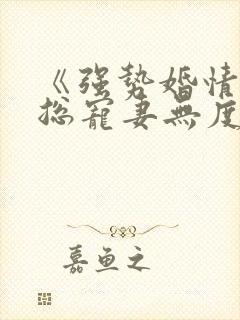 《强势婚情
总寵妻無度
嘉鱼之